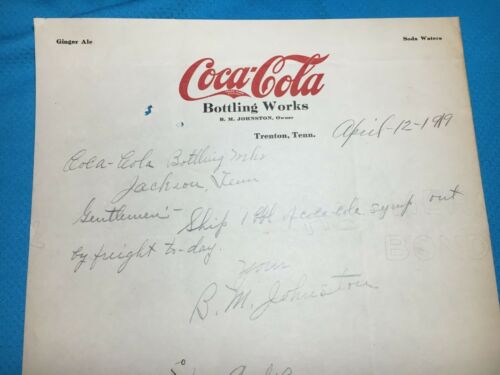 Ginger Ale
Soda Waters
Coca-Cola
Bottling Works
B. M. JOHNSTON, Owner
Trenton, Tenn.
April-12-1919
Coca-Cola Bottling Wks
Jackson, Tenn
Gentlemen: Ship 1 Bbl of coca-cola syrup out
by freight to-day.
Yours
B. M. Johnston
BOND